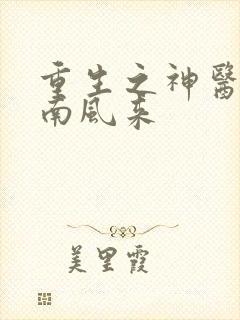 重生之神醫
南風来
美里霞